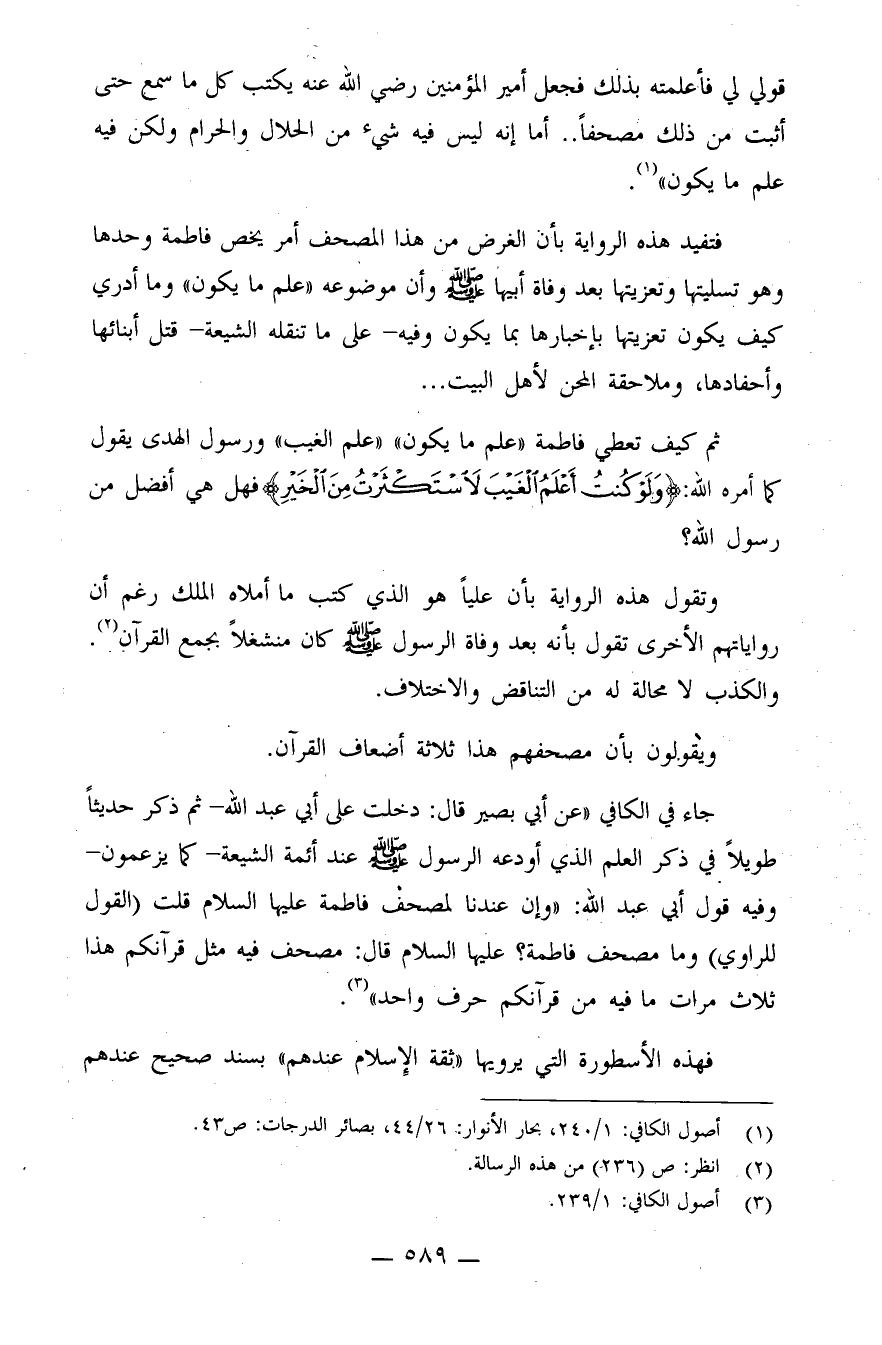 قولي لي فأعلمته بذلك فجعل أمير المؤمنين رضي الله عنه يكتب كل ما سمع حتى
أثبت من ذلك مصحفاً.. أما إنه ليس فيه شيء من الحلال والحرام ولكن فيه
علم ما يكون»(١).
فتفيد هذه الرواية بأن الغرض من هذا المصحف أمر يخص فاطمة وحدها
وهو تسليتها وتعزيتها بعد وفاة أبيها ﷺ وأن موضوعه «علم ما يكون» وما أدري
كيف يكون تعزيتها بإخبارها بما يكون وفيه– على ما تنقله الشيعة– قتل أبنائها
وأحفادها، وملاحقة المحن لأهل البيت...
ثم كيف تعطي فاطمة «علم ما يكون» «علم الغيب» ورسول الهدى يقول
كما أمره الله: ﴿وَلَوْ كُنتُ أَعْلَمُ ٱلْغَيْبَ لَاسْتَكْثَرْتُ مِنَ ٱلْخَيْرِ﴾ فهل هي أفضل من
رسول الله؟
وتقول هذه الرواية بأن علياً هو الذي كتب ما أملاه الملك رغم أن
رواياتهم الأخرى تقول بأنه بعد وفاة الرسول ﷺ كان منشغلاً بجمع القرآن(٢).
والكذب لا محالة له من التناقض والاختلاف.
ويقولون بأن مصحفهم هذا ثلاثة أضعاف القرآن.
جاء في الكافي «عن أبي بصير قال: دخلت على أبي عبد الله– ثم ذكر حديثاً
طويلاً في ذكر العلم الذي أودعه الرسول ﷺ عند أئمة الشيعة– كما يزعمون–
وفيه قول أبي عبد الله: «وإن عندنا لمصحف فاطمة عليها السلام قلت (القول
للراوي) وما مصحف فاطمة؟ عليها السلام قال: مصحف فيه مثل قرآنكم هذا
ثلاث مرات ما فيه من قرآنكم حرف واحد»(٣).
فهذه الأسطورة التي يرويها «ثقة الإسلام عندهم» بسند صحيح عندهم
(١) أصول الكافي: ٢٤٠/١، بحار الأنوار: ٤٤/٢٦، بصائر الدرجات: ص٤٣.
(٢) انظر: ص (٢٣٦) من هذه الرسالة.
(٣) أصول الكافي: ٢٣٩/١.
— ٥٨٩ —